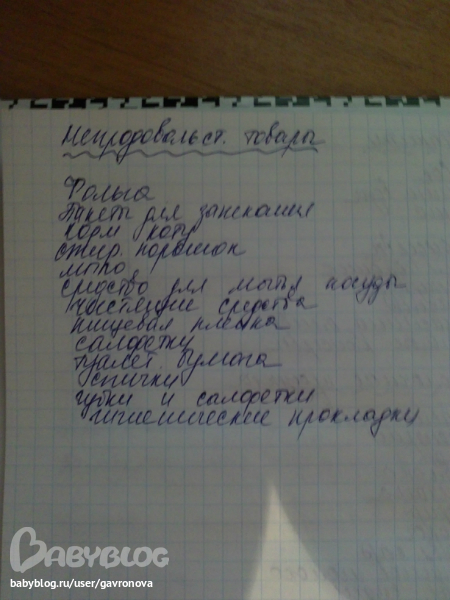 Непродовольст. товары
Фольга
Пакеты для запекания
корм коту
стир. порошок
мыло
средство для мытья посуды
чистящие средства
пищевая плёнка
салфетки
туалет бумага
спички
губки и салфетки
гигиенические прокладки
BABYBLOG
babyblog.ru/user/gavronova